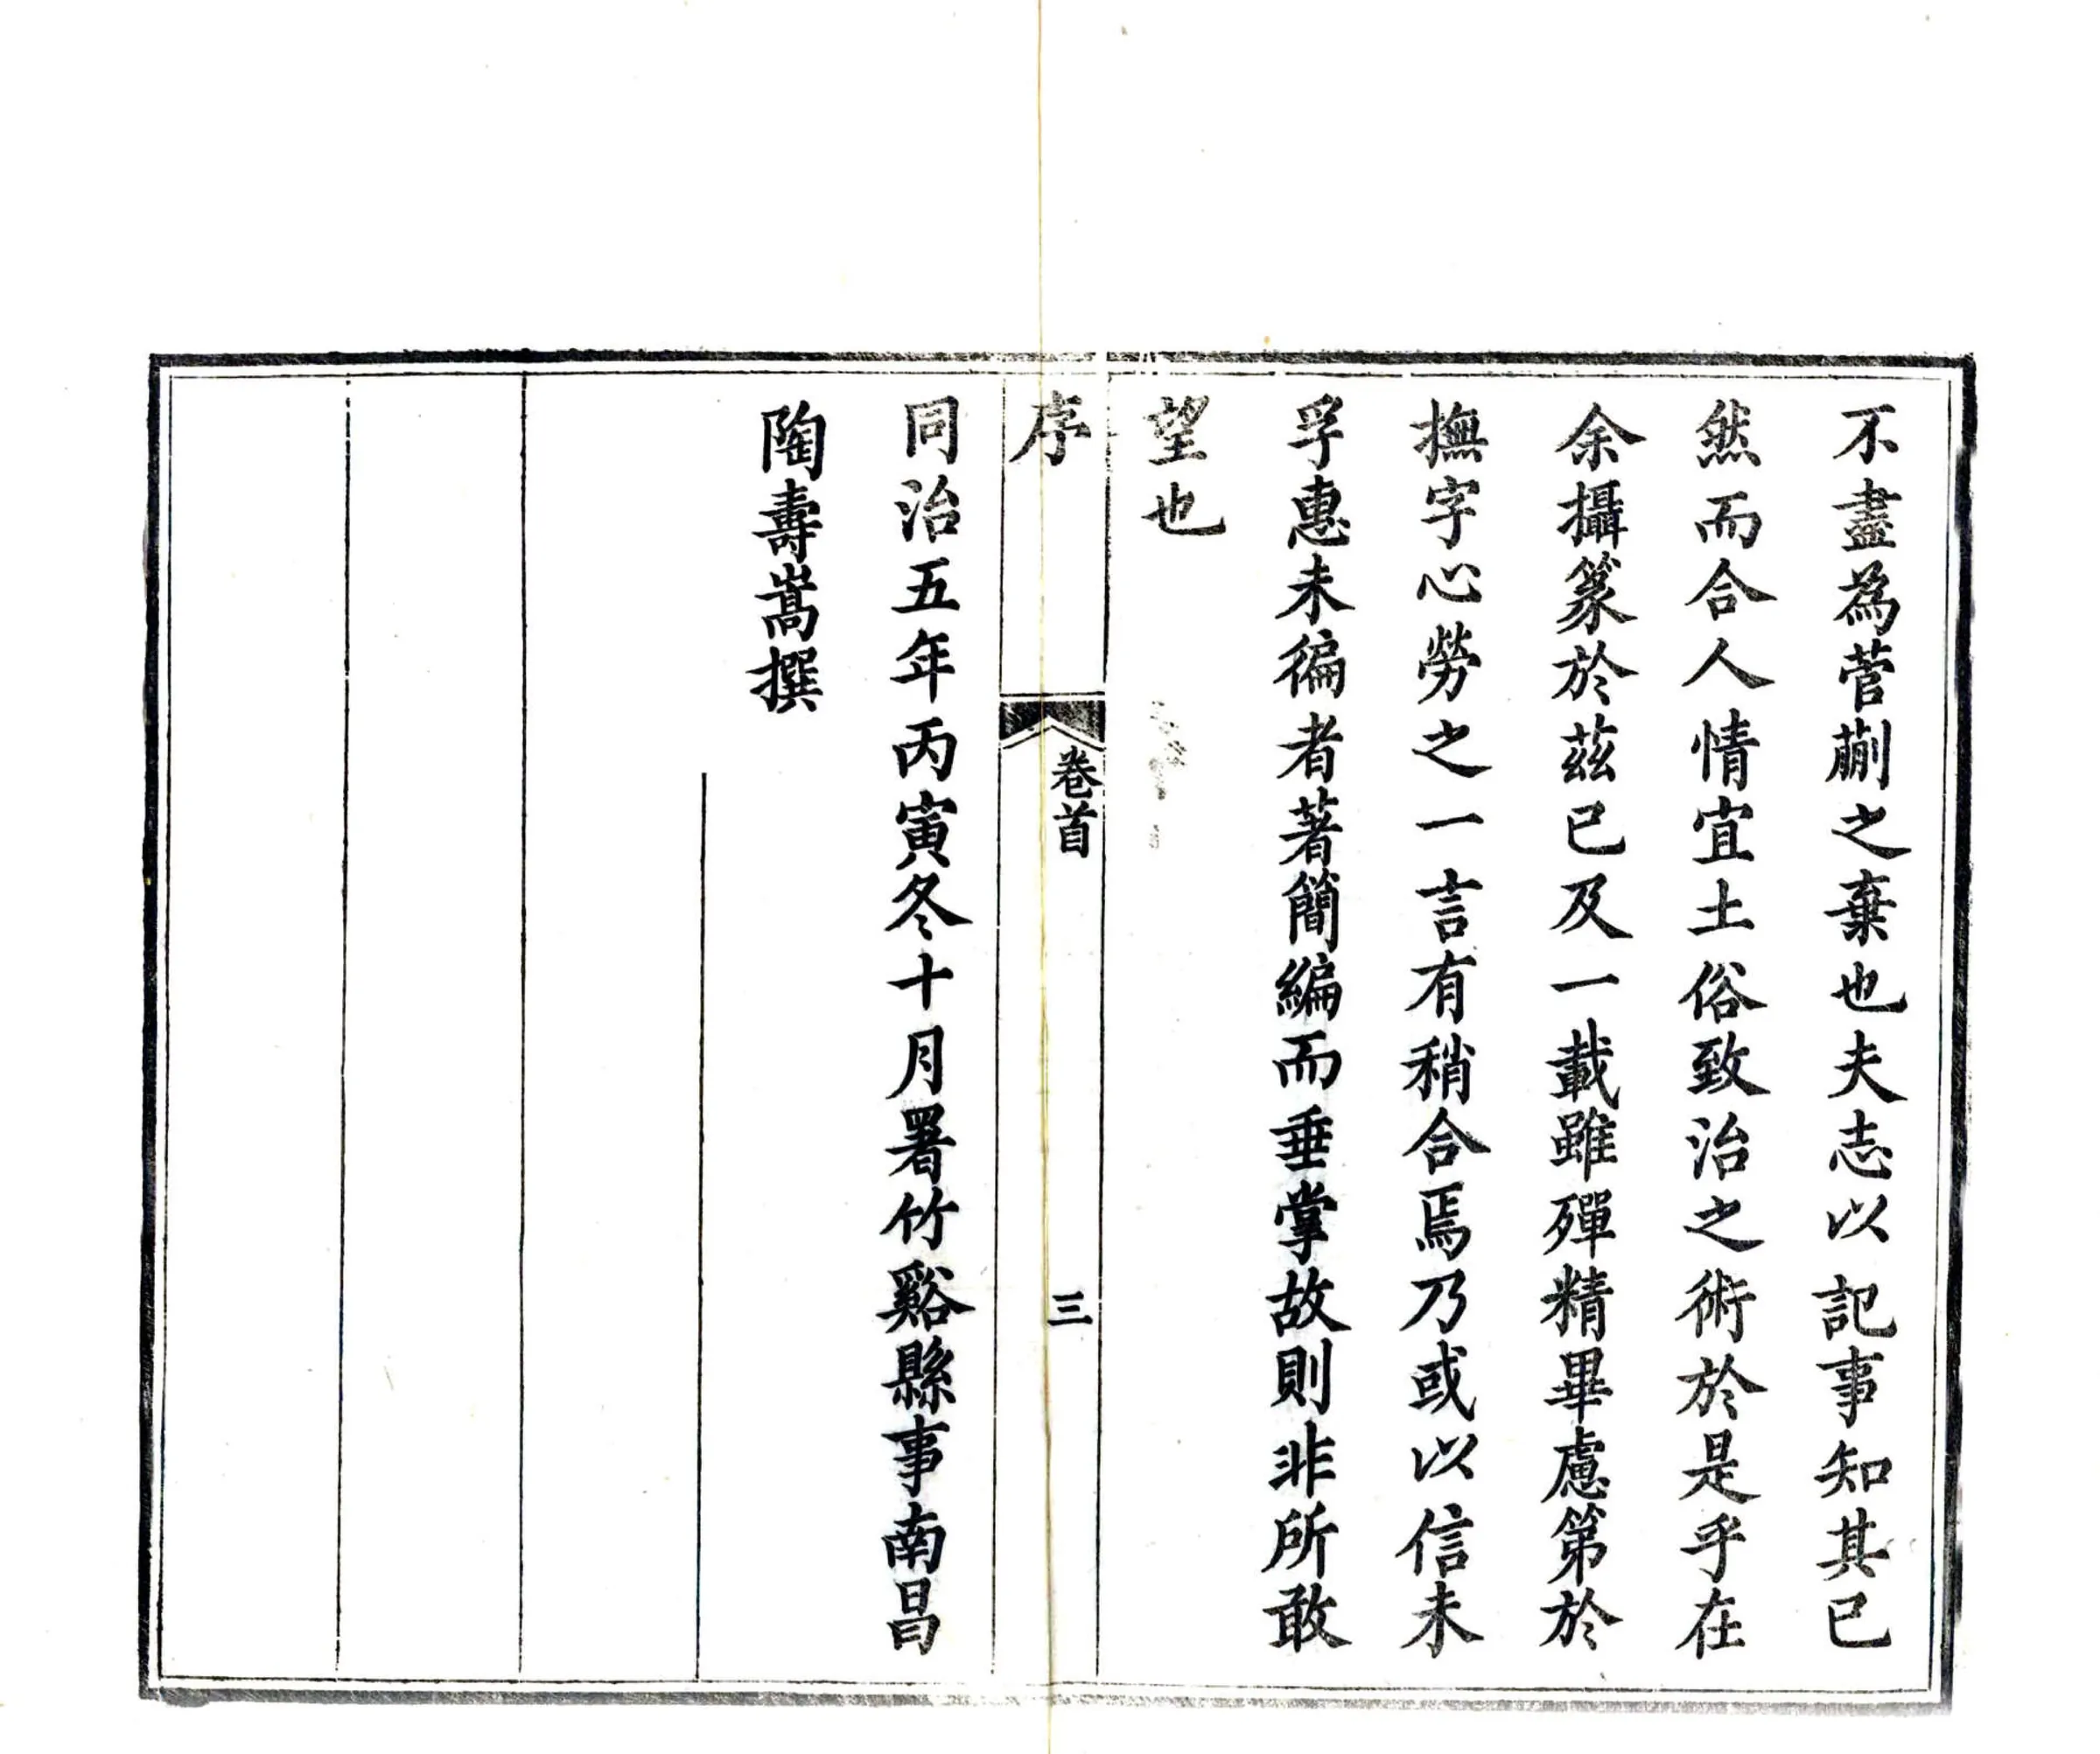 不盡為菅蒯之棄也夫志以記事知其已
然而合人情宜土俗致治之術於是乎在
余攝篆於茲已及一載雖殫精畢慮第於
撫字心勞之一言有稍合焉乃或以信未
孚惠未徧者著簡編而垂掌故則非所敢
望也
序
卷首
三
同治五年丙寅冬十月署竹谿縣事南昌
陶壽嵩撰